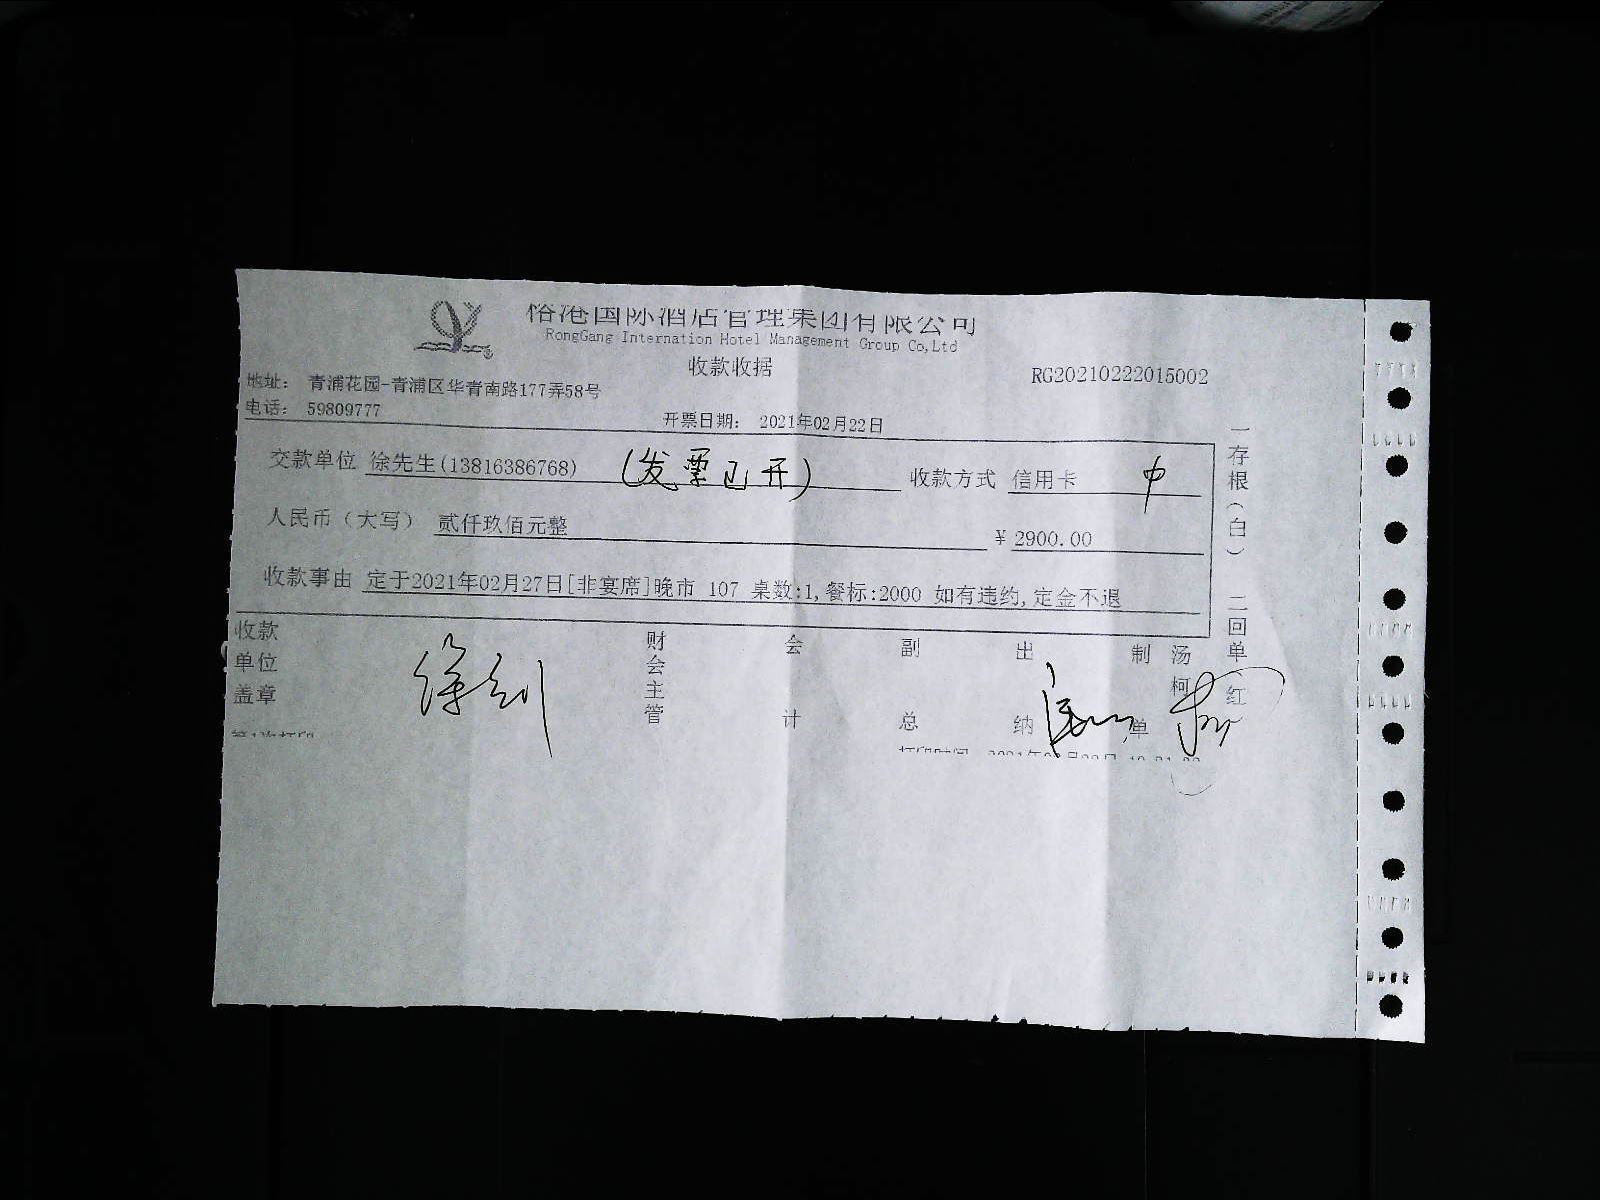 榕港国际酒店管理集团有限公司
RongGang Internation Hotel Management Group Co,Ltd
收款收据
RG20210222015002
地址： 青浦花园-青浦区华青南路177弄58号
电话： 59809777
开票日期： 2021年02月22日
交款单位 徐先生(13816386768) (发票已开) 收款方式 信用卡 中
人民币（大写） 贰仟玖佰元整 ￥2900.00
收款事由 定于2021年02月27日[非宴席]晚市 107 桌数:1,餐标:2000 如有违约,定金不退
收款单位盖章
财会主管
会计
副总
出纳
制单
汤柯
一存根(白) 二回单(红
第1次打印